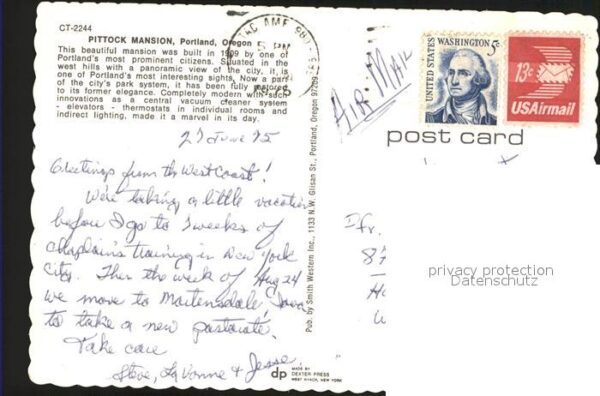 CT-2244
PITTOCK MANSION, Portland, Oregon
This beautiful mansion was built in 1909 by one of
Portland's most prominent citizens. Situated in the
west hills with a panoramic view of the city, it is
one of Portland's most interesting sights. Now a part
of the city's park system, it has been fully restored
to its former elegance. Completely modern with such
innovations as a central vacuum cleaner system
- elevators - thermostats in individual rooms and
indirect lighting, made it a marvel in its day.
27 June 75
Greetings from the West Coast!
We're taking a little vacation
before I go to 3 weeks of
chaplain's training in New York
City. Then the week of Aug 24
we move to Martensdale, Iowa
to take a new pastorate.
Take care
Steve, LaVonne & Jesse
Pub. by Smith Western Inc., 1133 N.W. Glisan St., Portland, Oregon 97209
dp
MADE BY
DEXTER PRESS
WEST NYACK, NEW YORK
PM
AIR MAIL
UNITED STATES
WASHINGTON 5c
13c
USAirmail
post card
fr.
privacy protection
Datenschutz